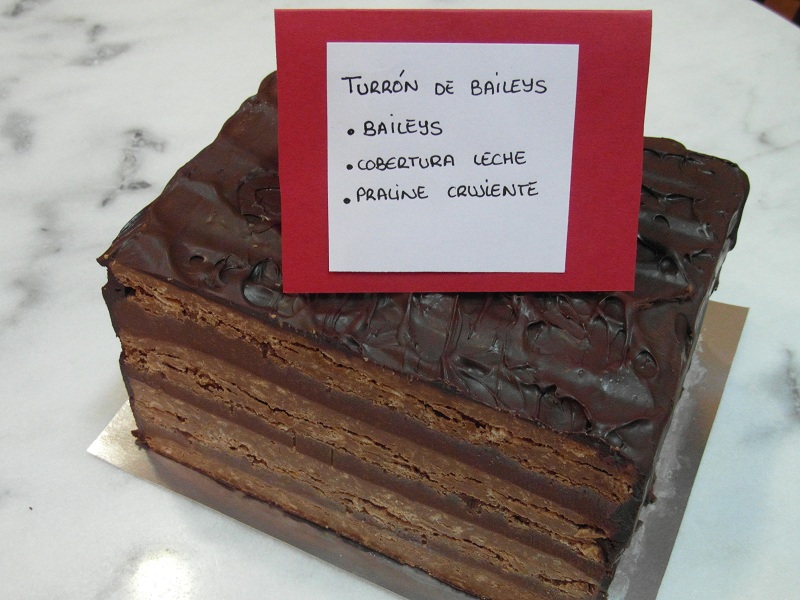 TURRÓN DE BAILEYS
• BAILEYS
• COBERTURA LECHE
• PRALINE CRUJIENTE